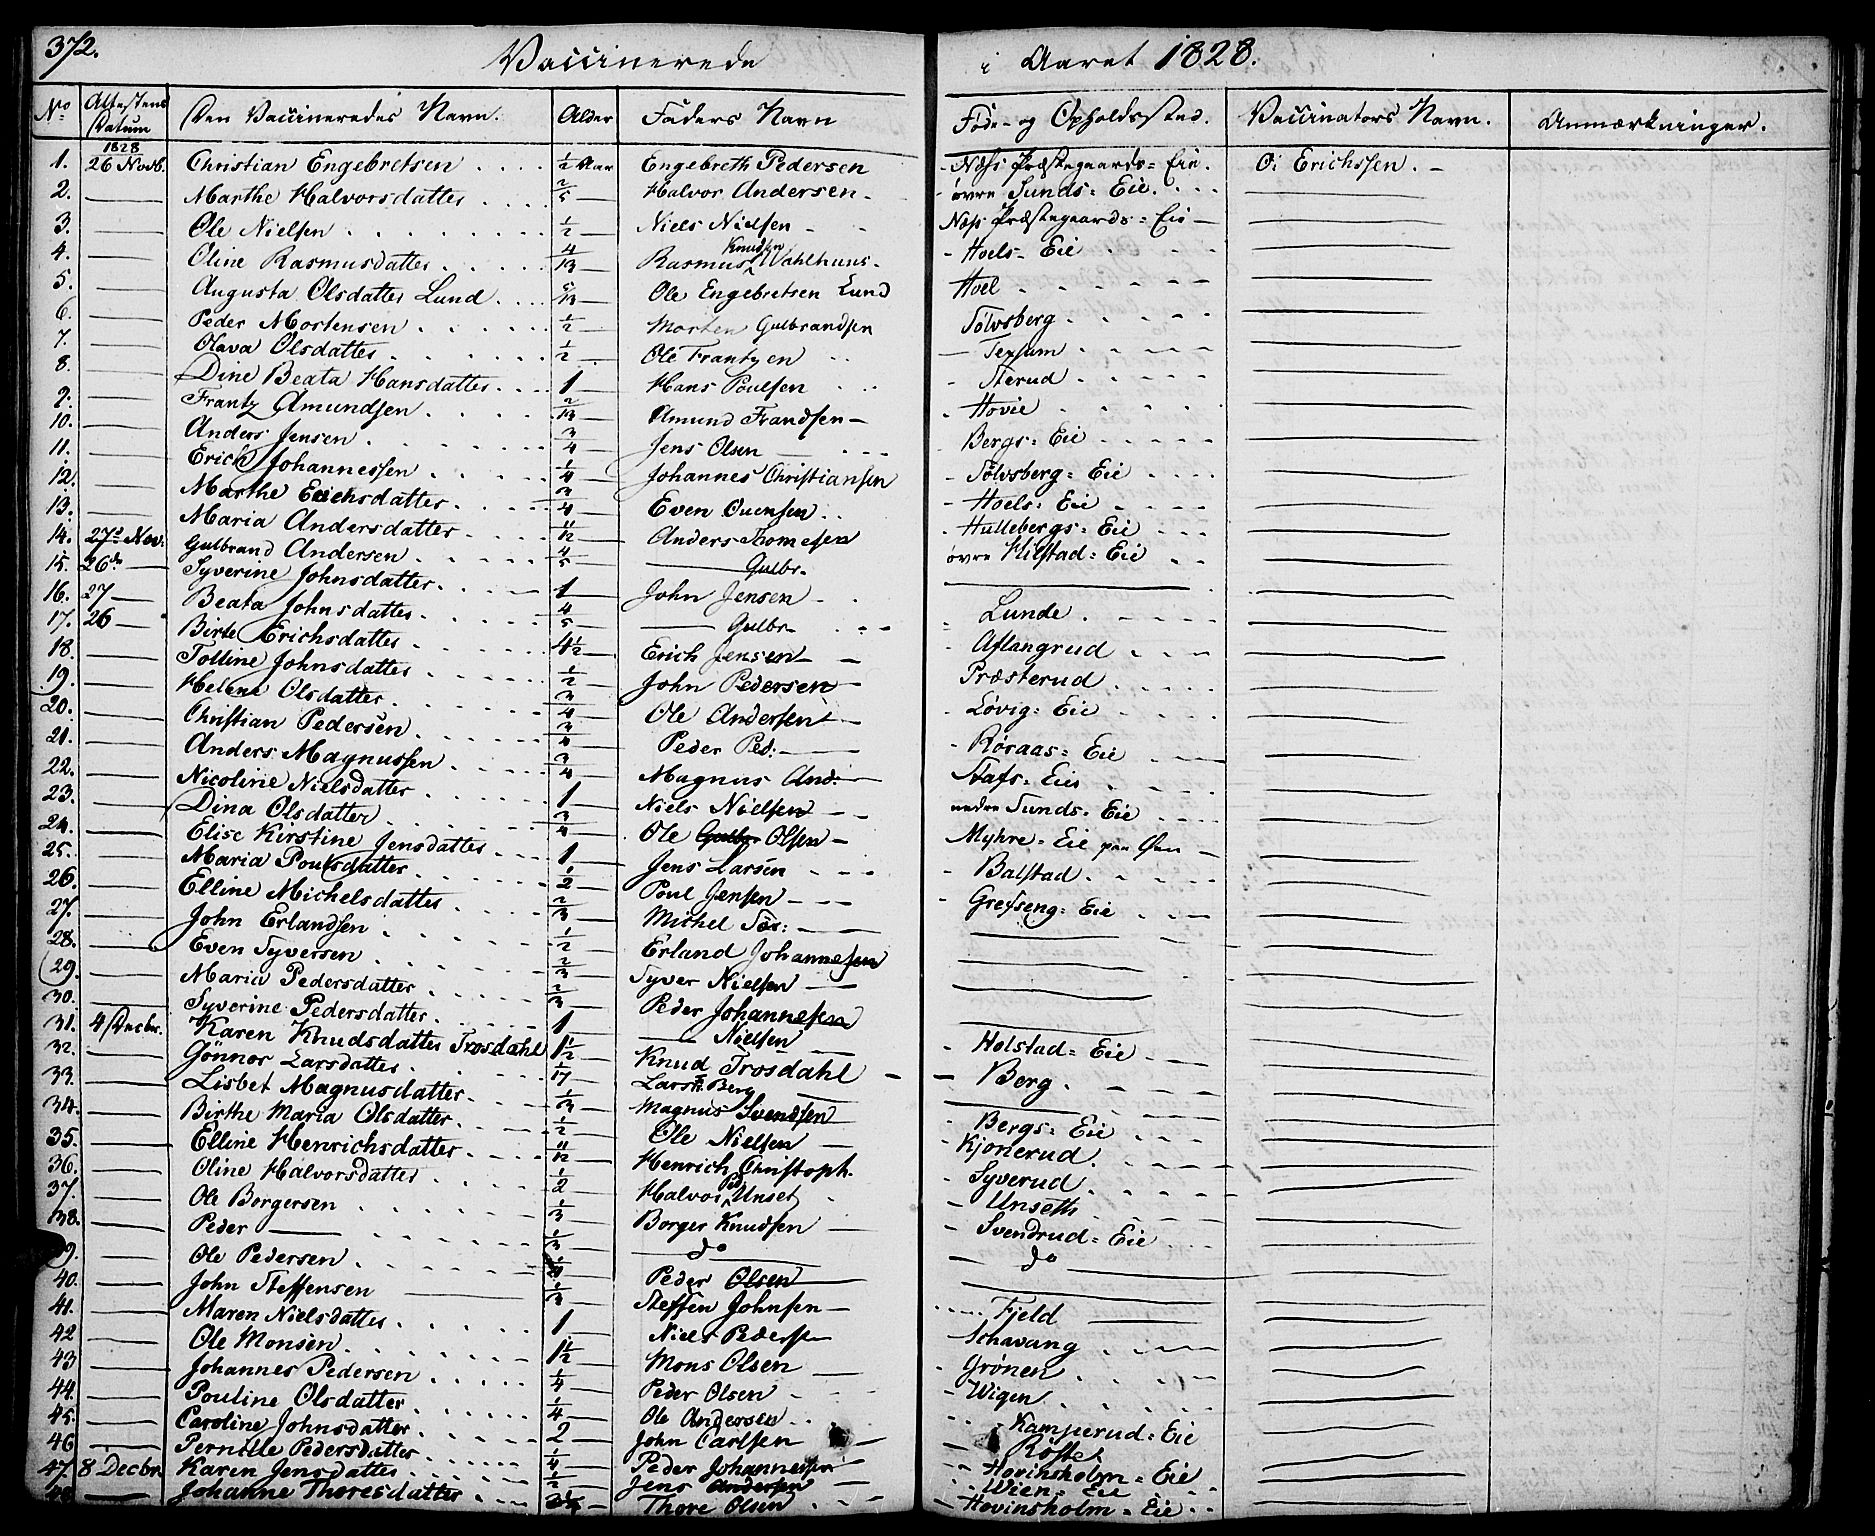 372. Vaccinerede i Aaret 1828.
No Attestens Datum Den Vaccineredes Navn. Alder Faders Navn Föde- og Opholdssted. Vaccinators Navn. Anmærkninger.
1828
1. 26 Novb. Christian Engebretsen 1/2 Aar Engebreth Pedersen Næss Præstegaards= Eie. O: Erichssen.
2. Marthe Halvorsdatter 2/5 Halvor Andersen övre Sunds= Eie.
3. Ole Nielsen 1/2 Niels Nielsen Næss Præstegaards= Eie
4. Oline Rasmusdatter 4/13 Rasmus Knudsen Hoels= Eie
5. Augusta Olsdatter Lund 5/13 Ole Engebretsen Lund Hoel
6. Peder Mortensen 1/2 Morten Gulbrandsen Tölvsberg
7. Olava Olsdatter 1/2 Ole Frantzen
8. Dine Beata Hansdatter 1 Hans Poulsen Sterud
9. Frantz Amundsen 2/13 Amund Frandsen Hovie
10. Anders Jensen 3/4 Jens Olsen Bergs= Eie
11. Erich Johannessen 1/4 Johannes Christiansen Tölvsberg= Eie
12. Marthe Evensdatter 3/4 Even Evensen Hoels= Eie
13. Maria Andersdatter 11/12 Anders Thomesen Hullebergs= Eie
14. 27de Nov: Gulbrand Andersen 4/5 Gulbr. övre Kilstad= Eie
15. 26de Syverine Johnsdatter 1 John Jensen
16. 27 Beata Johnsdatter 4/5 Gulbr. Lunde
17. 26 Birte Erichsdatter 4 1/2 Erich Jensen Aflangrud
18. Tolline Johnsdatter 1/2 John Pedersen Præsterud
19. Helene Olsdatter 3/4 Ole Andersen Lövig= Eie
20. Christian Pedersen 3/4 Peder Ped: Röraas= Eie
21. Anders Magnussen 3/4 Magnus And: Stafs= Eie
22. Nicoline Nielsdatter 1 Niels Nielsen nedre Sunds= Eie
23. Dina Olsdatter 3/4 Ole Olsen Myhre= Eie paa Öen
24. Elise Kirstine Jensdatter 1 Jens Larsen Balstad
25. Maria Poulsdatter 1/2 Poul Jensen Grefseng= Eie
26. Elline Michelsdatter 2/3 Michel
27. John Erlandsen 1/2 Erland Johannesen
28. Even Syversen 2/3 Syver Nielsen
29. Maria Pedersdatter 2/3 Peder Johannesen
30. Syverine Pedersdatter 1 Nielsen Holstad= Eie
31. 4 Decbr. Karen Knudsdatter Frosdahl 1 1/2 Knud Frosdahl Berg
32. Gönnor Larsdatter Lars Berg
33. Lisbet Magnusdatter 1/3 Magnus Svendsen Bergs= Eie
34. Birthe Maria Olsdatter 1/2 Ole Nielsen Kjonerud
35. Elline Henrichsdatter 11/12 Henrich Christoph. Syverud
36. Oline Halvorsdatter 1/2 Halvor Unset Unseth
37. Ole Borgersen 1/3 Borger Knudsen Svendrud= Eie
38. Peder 1/3 do do
39. Ole Pedersen Peder Olsen
40. John Steffensen 1/3 Steffen Johnsen Fjeld
41. Maren Nielsdatter 1 Niels Pedersen Schavang
42 Ole Monsen 1 1/2 Mons Olsen Grönen
43 Johannes Pedersen 1/4 Peder Olsen Wigen
44. Pouline Olsdatter 1/4 Ole Andersen Kamperud= Eie
45. Caroline Johnsdatter 2 John Carlsen
46 Pernille Pedersdatter 1/4 Peder Johannesen Hovinsholm= Eie
47. 8 Decbr. Karen Jensdatter 1/2 Jens Andersen Wien= Eie
48 Johanne Thoresdatter Thore Olsen Hovinsholm= Eie